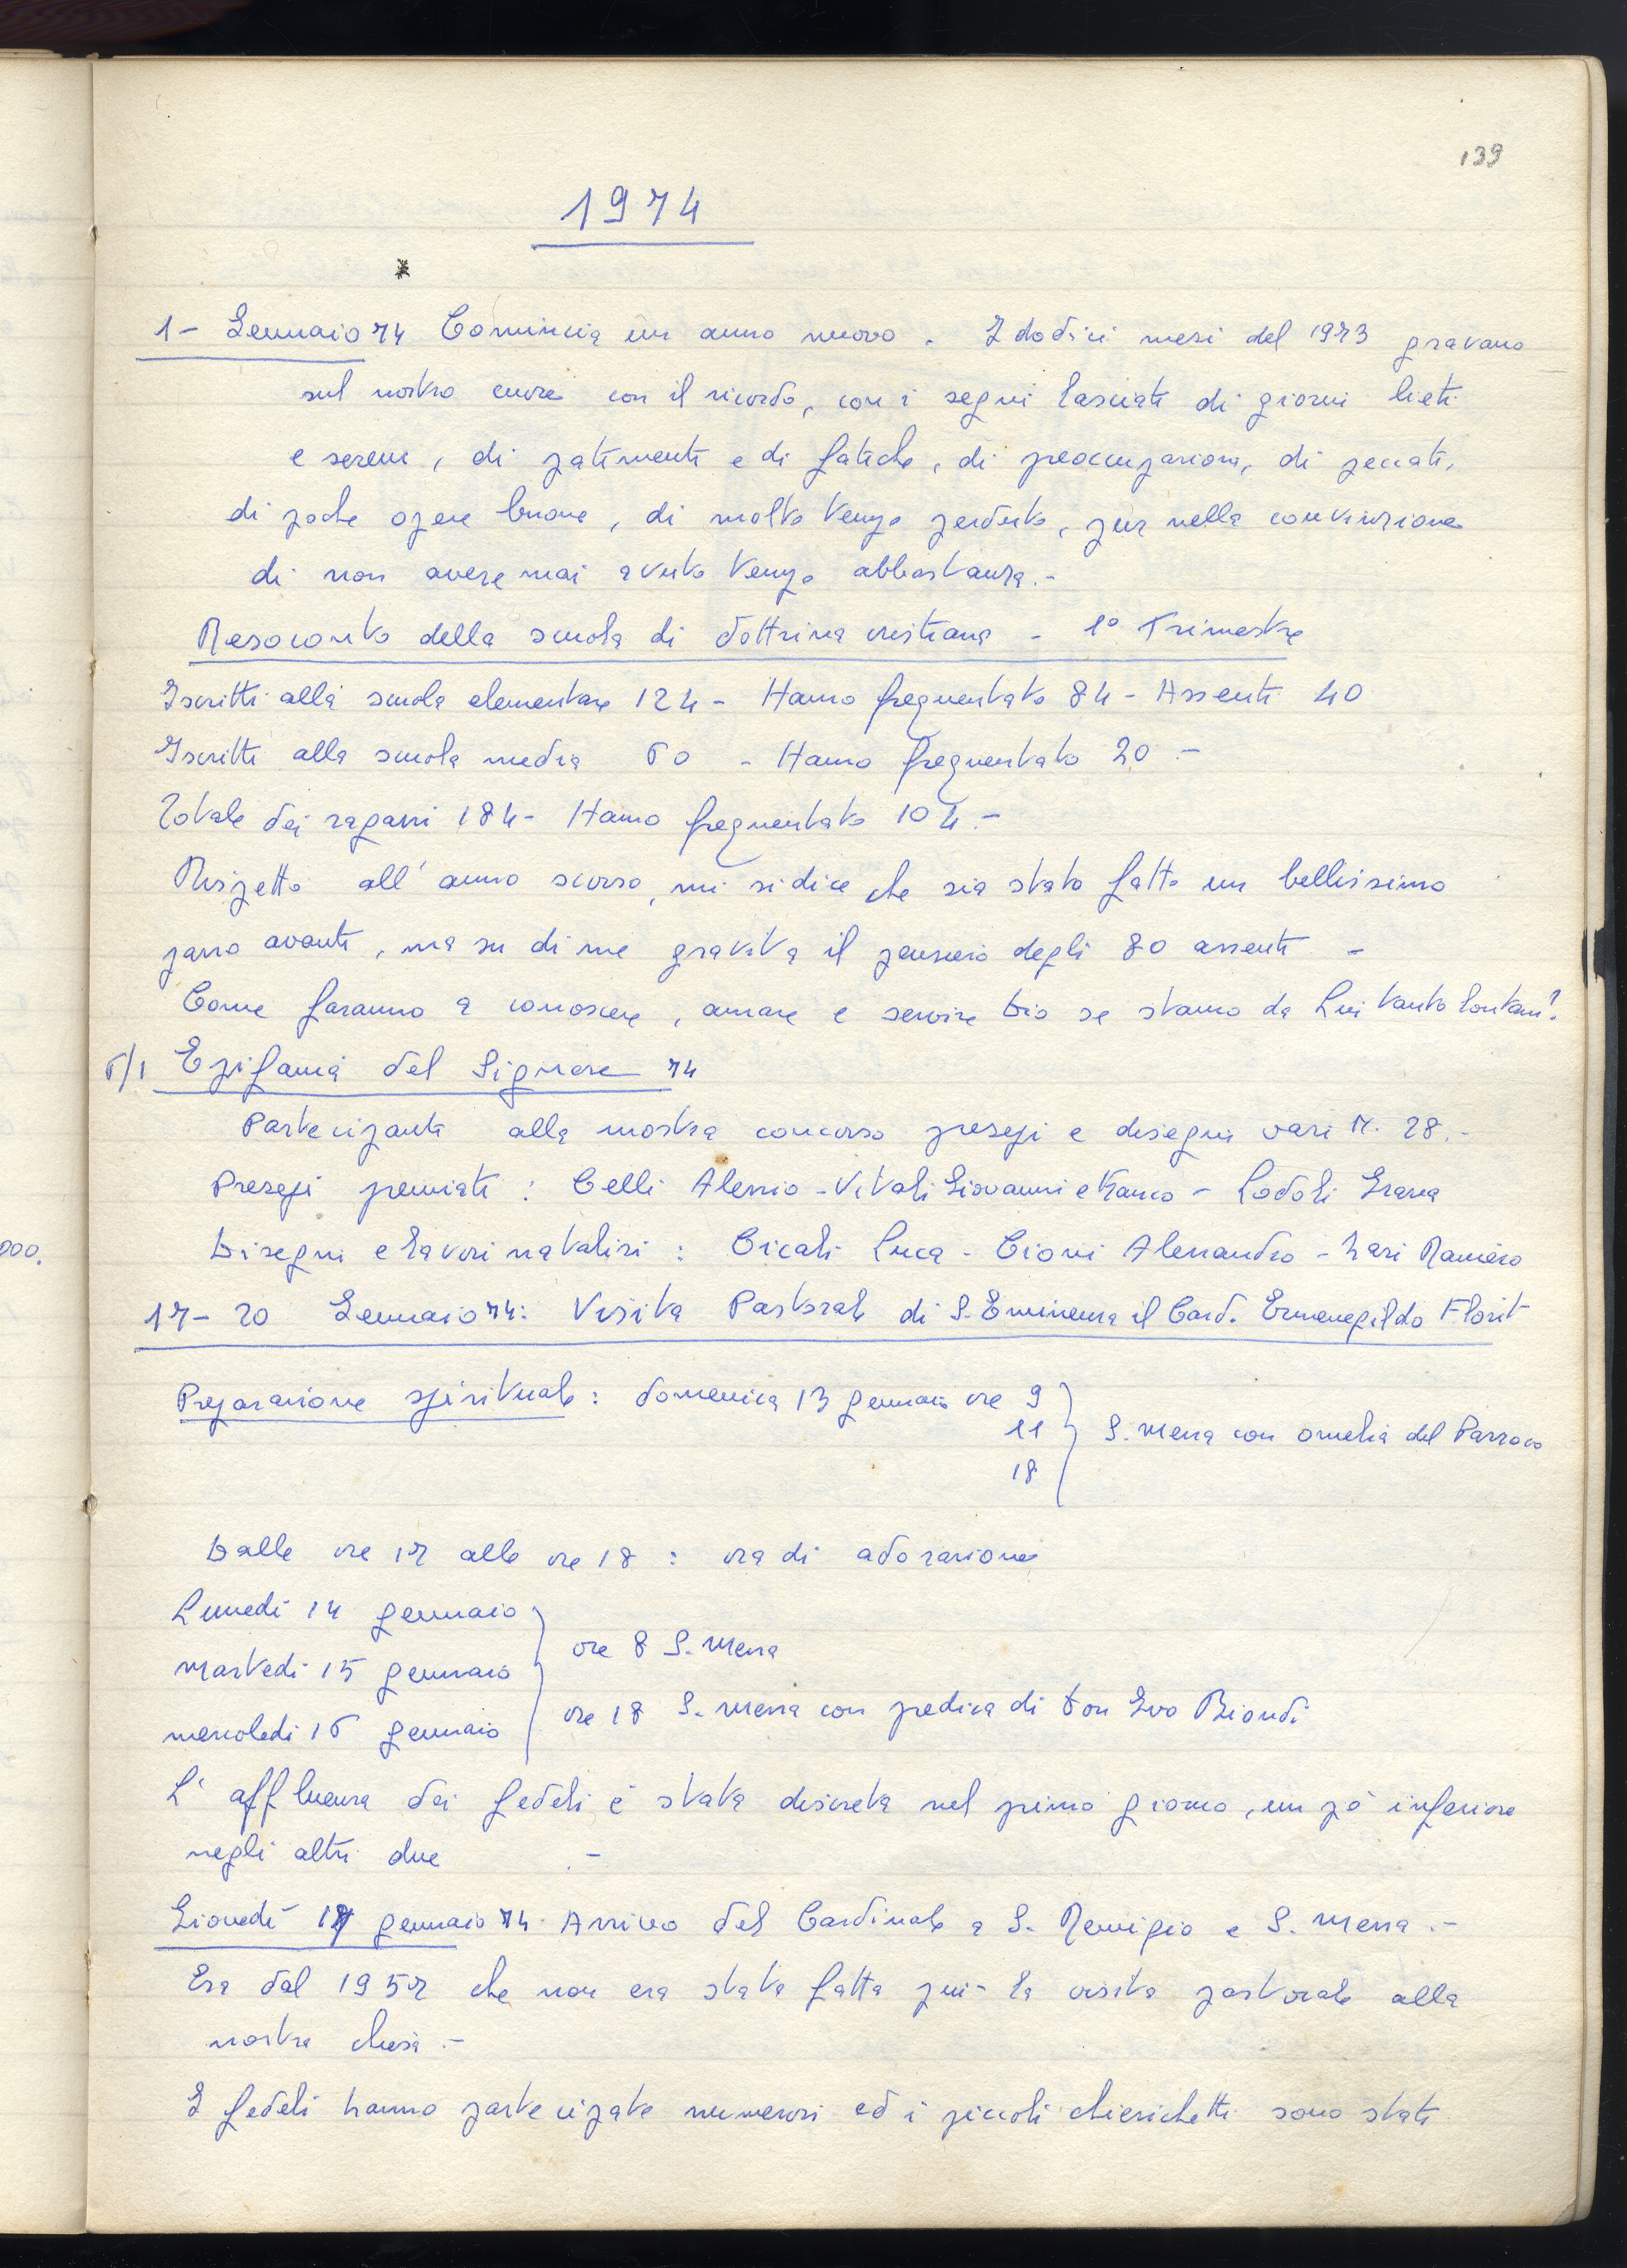 139
1974
1- Gennaio 74 Comincia un anno nuovo. I dodici mesi del 1973 gravano
sul nostro cuore con il ricordo, con i segni lasciati di giorni lieti
e sereni, di patimenti e di fatiche, di preoccupazioni, di peccati,
di poche opere buone, di molto tempo perduto, pur nella convinzione
di non avere mai avuto tempo abbastanza.-
Resoconto della scuola di dottrina cristiana - 1° Trimestre
Iscritti alla scuola elementare 124 - Hanno frequentato 84 - Assenti 40
Iscritti alla scuola media 60 - Hanno frequentato 20 -
Totale dei ragazzi 184 - Hanno frequentato 104.-
Rispetto all'anno scorso, mi si dice che sia stato fatto un bellissimo
passo avanti, ma su di me gravita il pensiero degli 80 assenti -
Come faranno a conoscere, amare e servire Dio se stanno da Lui tanto lontani?
6/1 Epifania del Signore 74
Partecipanti alla mostra concorso presepi e disegni vari N. 28.-
Presepi premiati: Celli Alessio - Vitali Giovanni e Franco - Lodoli Grazia
Disegni e lavori natalizi: Cicali Luca - Cioni Alessandro - Lari Raniero
000.
17-20 Gennaio 74: Visita Pastorale di S. Eminenza il Card. Ermenegildo Florit
Preparazione spirituale: domenica 13 gennaio ore 9
11 S. Messa con omelia del Parroco
18
Dalle ore 17 alle ore 18: ora di adorazione
Lunedì 14 gennaio
ore 8 S. Messa
Martedì 15 gennaio
ore 18 S. Messa con predica di Don Ivo Biondi
mercoledì 16 gennaio
L'affluenza dei fedeli è stata discreta nel primo giorno, un pò inferiore
negli altri due .-
Giovedì 17 gennaio 74 Arrivo del Cardinale a S. Remigio e S. Messa.-
Era dal 1957 che non era stata fatta più la visita pastorale alla
nostra chiesa.-
I fedeli hanno partecipato numerosi ed i piccoli chierichetti sono stati